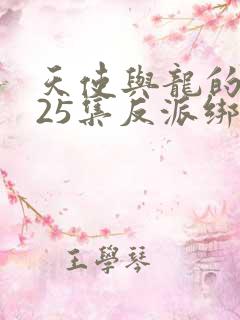 天使與龍的
25集反派綁
王學琴